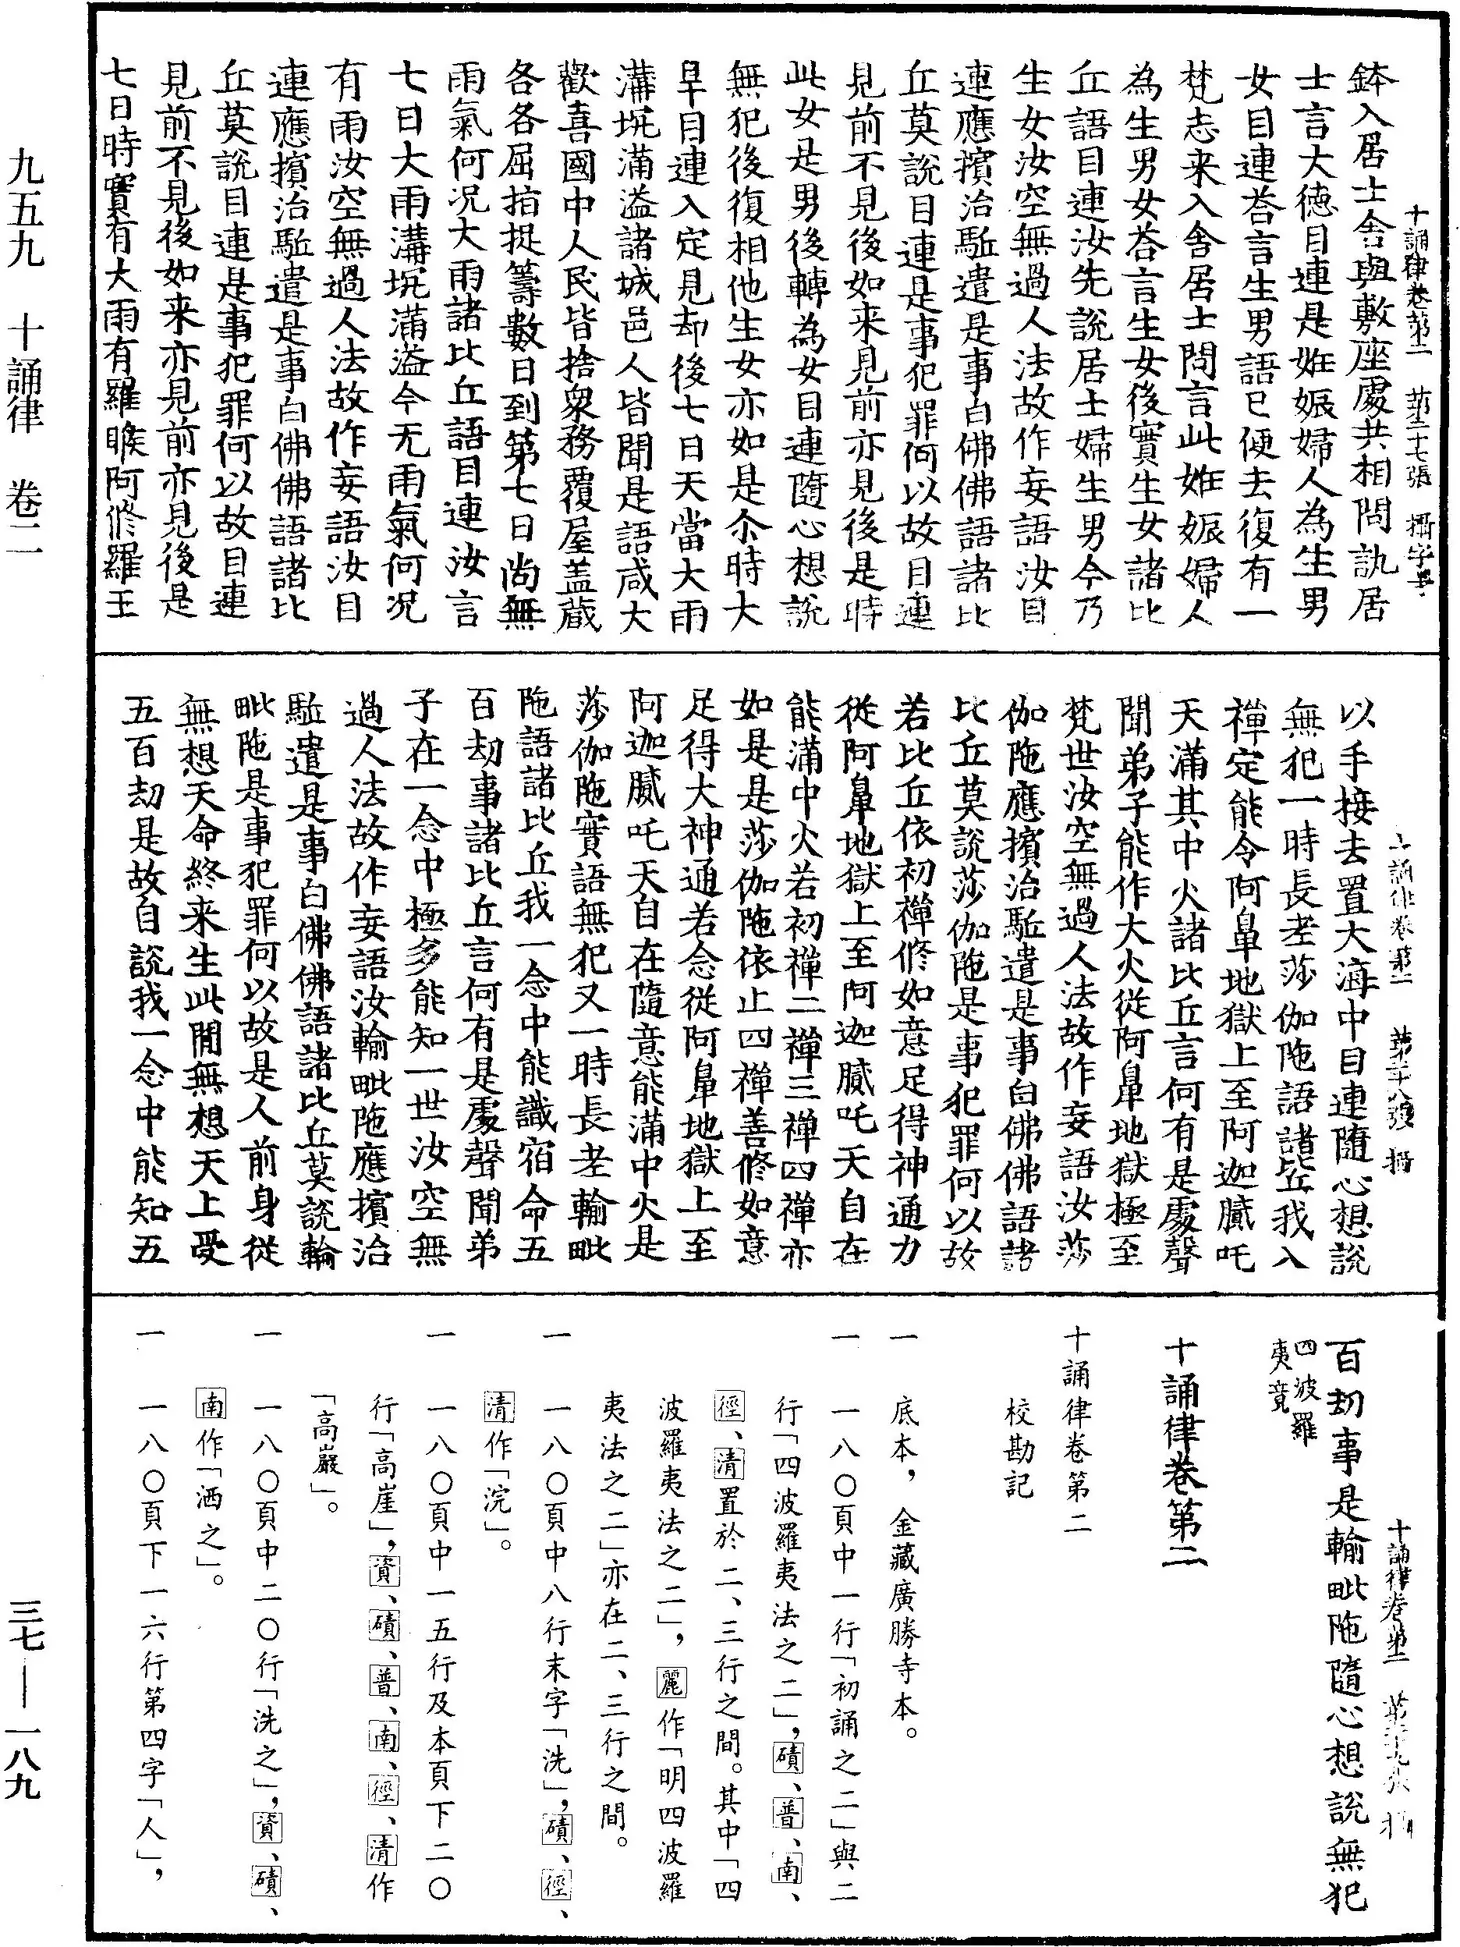 十誦律卷第二 第二十七張 攝字号
鉢入居士舍與敷座處共相問訊居
士言大德目連是姙娠婦人為生男
女目連荅言生男語已便去復有一
梵志来入舍居士問言此姙娠婦人
為生男女荅言生女後實生女諸比
丘語目連汝先說居士婦生男今乃
生女汝空無過人法故作妄語汝目
連應擯治駈遣是事白佛佛語諸比
丘莫說目連是事犯罪何以故目連
見前不見後如来見前亦見後是時
此女是男後轉為女目連隨心想說
無犯後復相他生女亦如是尒時大
旱目連入定見却後七日天當大雨
溝坑滿溢諸城邑人皆聞是語咸大
歡喜國中人民皆捨衆務覆屋盖藏
各各屈指捉籌數日到第七日尚無
雨氣何況大雨諸比丘語目連汝言
七日大雨溝坑滿溢今无雨氣何況
有雨汝空無過人法故作妄語汝目
連應擯治駈遣是事白佛佛語諸比
丘莫說目連是事犯罪何以故目連
見前不見後如来亦見前亦見後是
七日時實有大雨有羅睺阿脩羅王
十誦律卷第二 第二十八張 攝
以手接去置大海中目連隨心想說
無犯一時長老莎伽陁語諸比丘我入
禪定能令阿鼻地獄上至阿迦膩吒
天滿其中火諸比丘言何有是處聲
聞弟子能作大火從阿鼻地獄極至
梵世汝空無過人法故作妄語汝莎
伽陁應擯治駈遣是事白佛佛語諸
比丘莫說莎伽陁是事犯罪何以故
若比丘依初禪修如意足得神通力
從阿鼻地獄上至阿迦膩吒天自在
能滿中火若初禪二禪三禪四禪亦
如是是莎伽陁依止四禪善修如意
足得大神通若念從阿鼻地獄上至
阿迦膩吒天自在隨意能滿中火是
莎伽陁實語無犯又一時長老輸毗
陁語諸比丘我一念中能識宿命五
百劫事諸比丘言何有是處聲聞弟
子在一念中極多能知一世汝空無
過人法故作妄語汝輸毗陁應擯治
駈遣是事白佛佛語諸比丘莫說輸
毗陁是事犯罪何以故是人前身從
無想天命終来生此間無想天上受
五百劫是故自說我一念中能知五
十誦律卷第二 第二十九張 攝
百劫事是輸毗陁隨心想說無犯
四波羅
夷竟
十誦律卷第二
十誦律卷第二
校勘記
一 底本，金藏廣勝寺本。
一 一八〇頁中一行「初誦之二」與二
行「四波羅夷法之二」，磧、普、南、
徑、清置於二、三行之間。其中「四
波羅夷法之二」，麗作「明四波羅
夷法之二」亦在二、三行之間。
一 一八〇頁中八行末字「洗」，磧、徑、
清作「浣」。
一 一八〇頁中一五行及本頁下二〇
行「高崖」，資、磧、普、南、徑、清作
「高巖」。
一 一八〇頁中二〇行「洗之」，資、磧、
南作「洒之」。
一 一八〇頁下一六行第四字「人」，
九五九 十誦律 卷二
三七——一八九